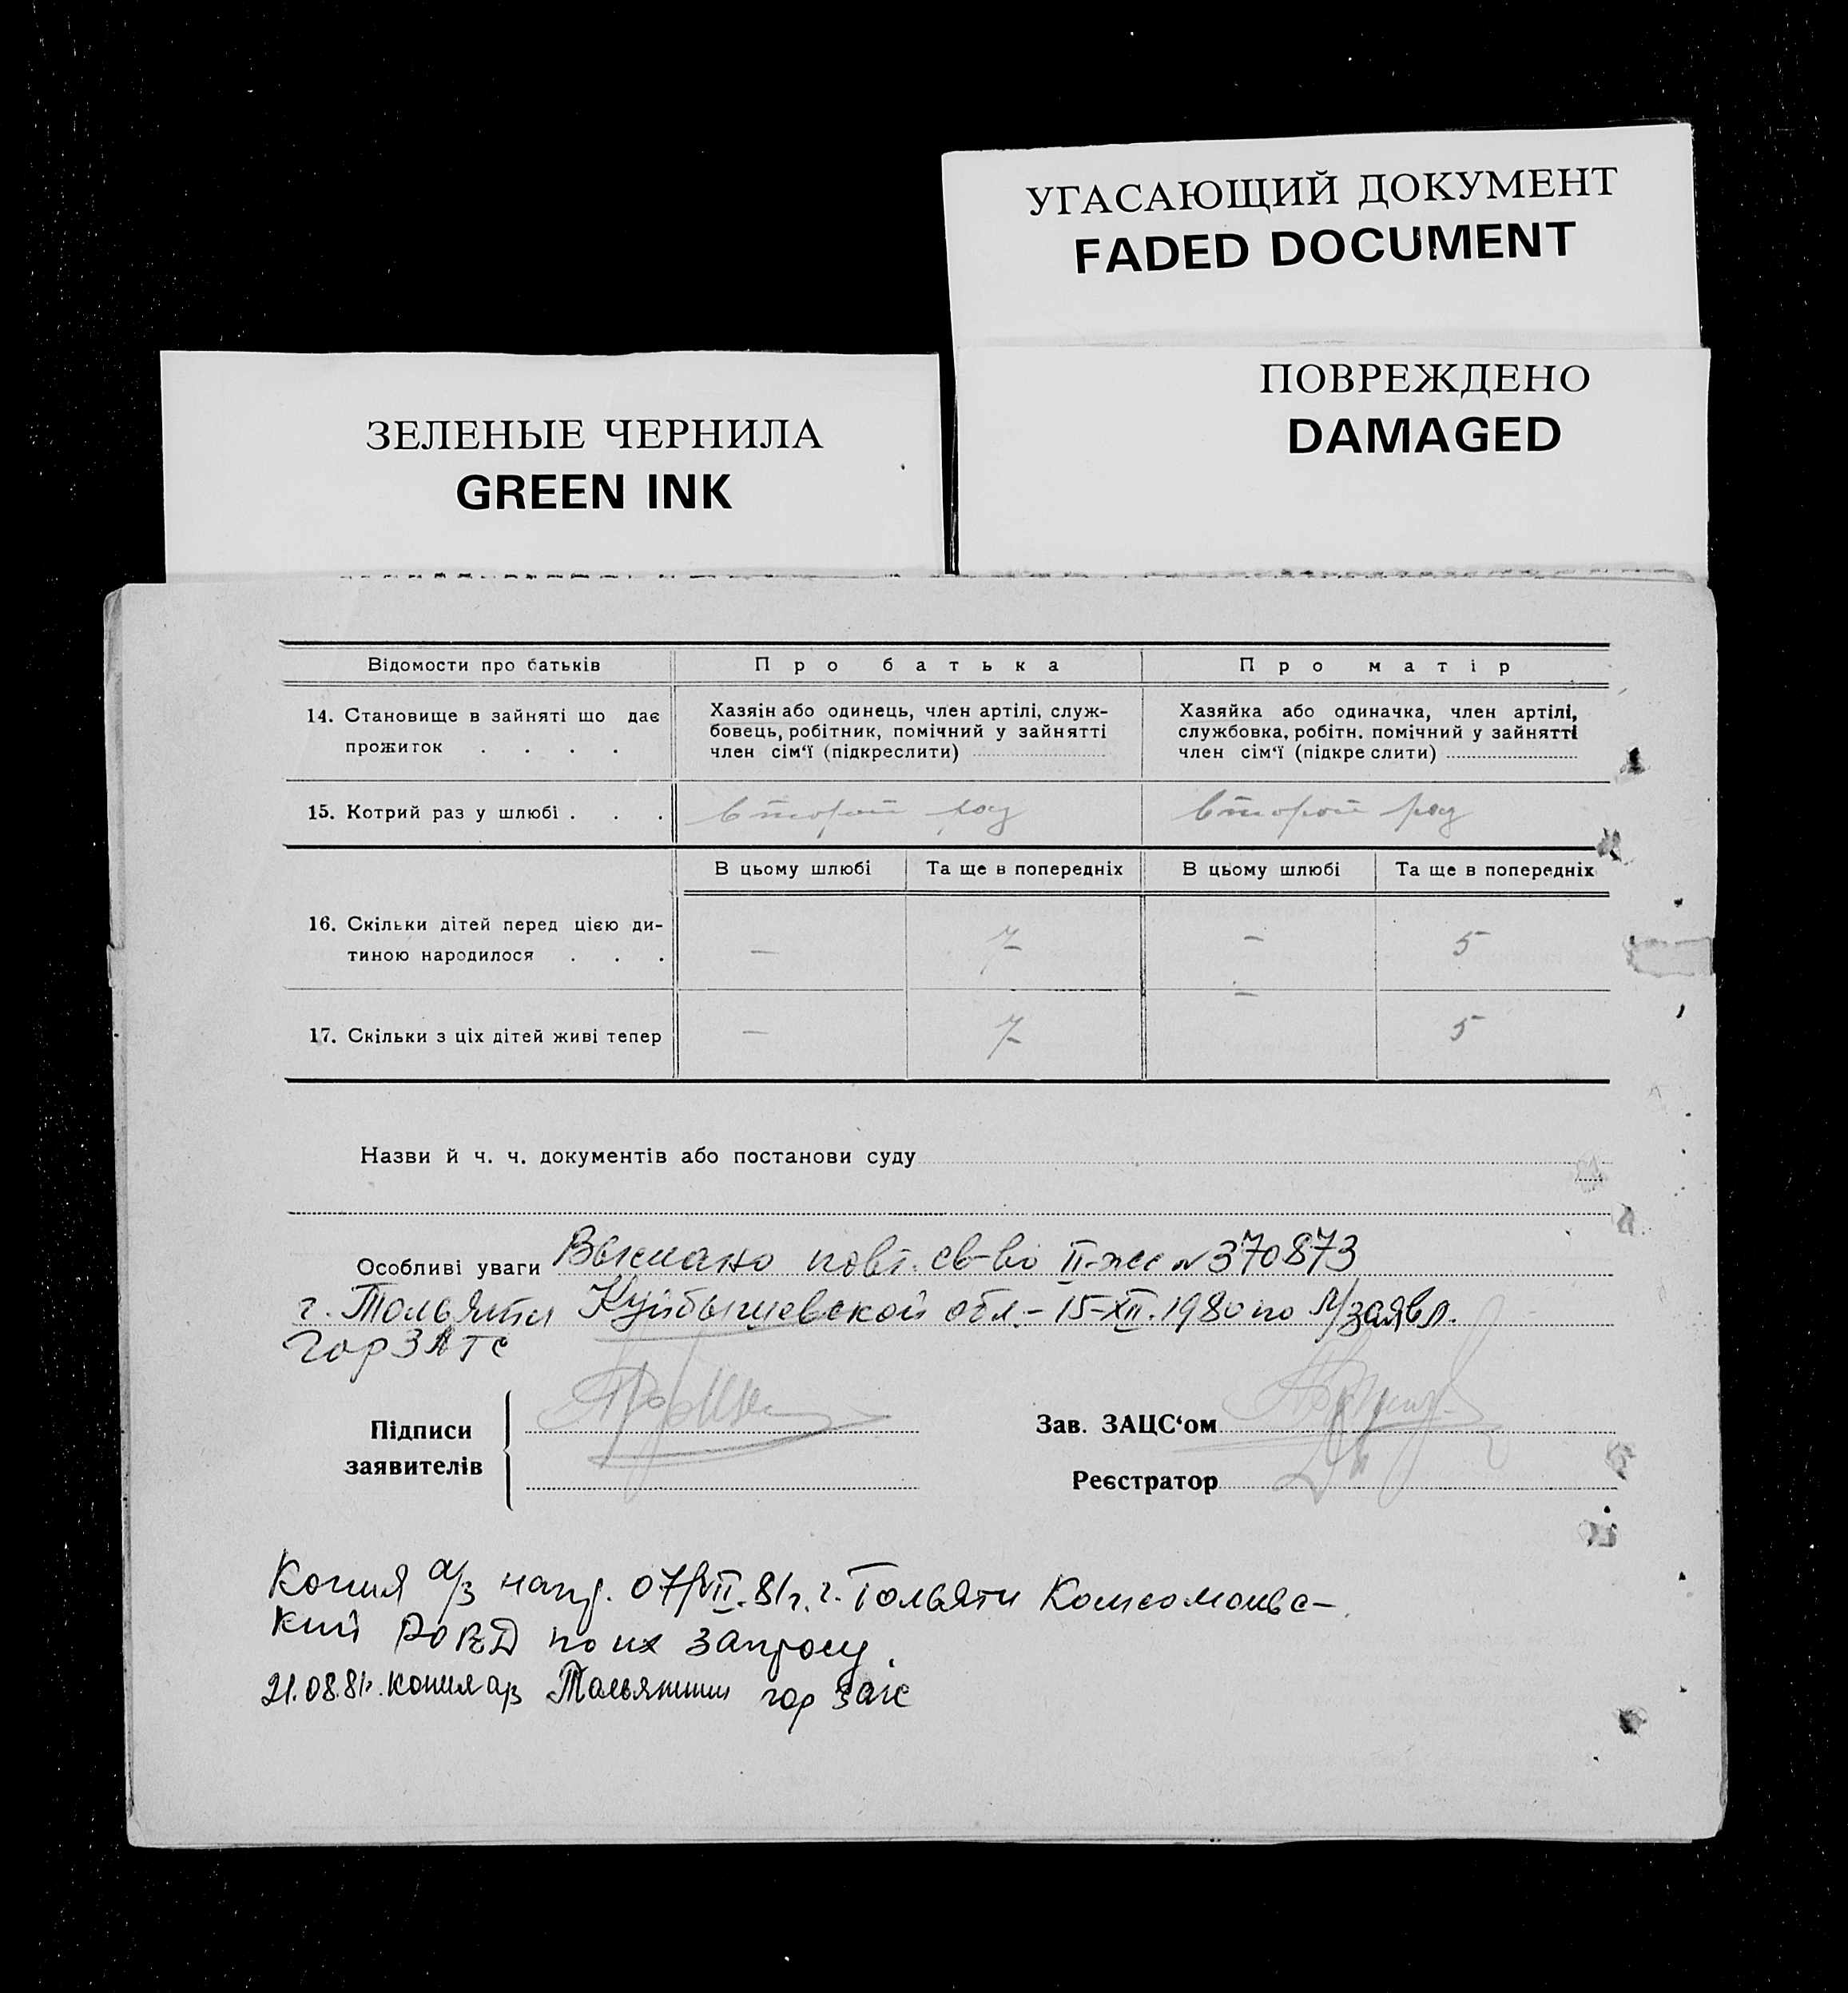 УГАСАЮЩИЙ ДОКУМЕНТ
FADED DOCUMENT
ПОВРЕЖДЕНО
DAMAGED
ЗЕЛЕНЫЕ ЧЕРНИЛА
GREEN INK
Відомости про батьків Про батька Про матір
14. Становище в зайняті що дає прожиток . . . .
Хазяін або одинець, член артілі, служ-
бовець, робітник, помічний у зайнятті
член сім‘ї (підкреслити)
Хазяйка або одиначка, член артілі,
службовка, робітн. помічний у зайнятті
член сім‘ї (підкре слити)
15. Котрий раз у шлюбі . . . второй раз второй раз
В цьому шлюбі Та ще в попередніх В цьому шлюбі Та ще в попередніх
16. Скільки дітей перед цією ди-
тиною народилося . . . — 7 — 5
17. Скільки з ціх дітей живі тепер — 7 — 5
Назви й ч. ч. документів або постанови суду
Особливі уваги Выслано повт. св-во II-жс № 370873
г. Тольятти Куйбышевской обл.- 15-XII.1980 по л/заявл.
горЗАГС
Підписи
заявителів
Зав. ЗАЦС‘ом
Реєстратор
Копия а/з напр. 07/VII.81г. г. Тольяти Комсомольс-
кий РОВД по их запросу.
21.08.81г. копия а/з Тольяттин гор загс